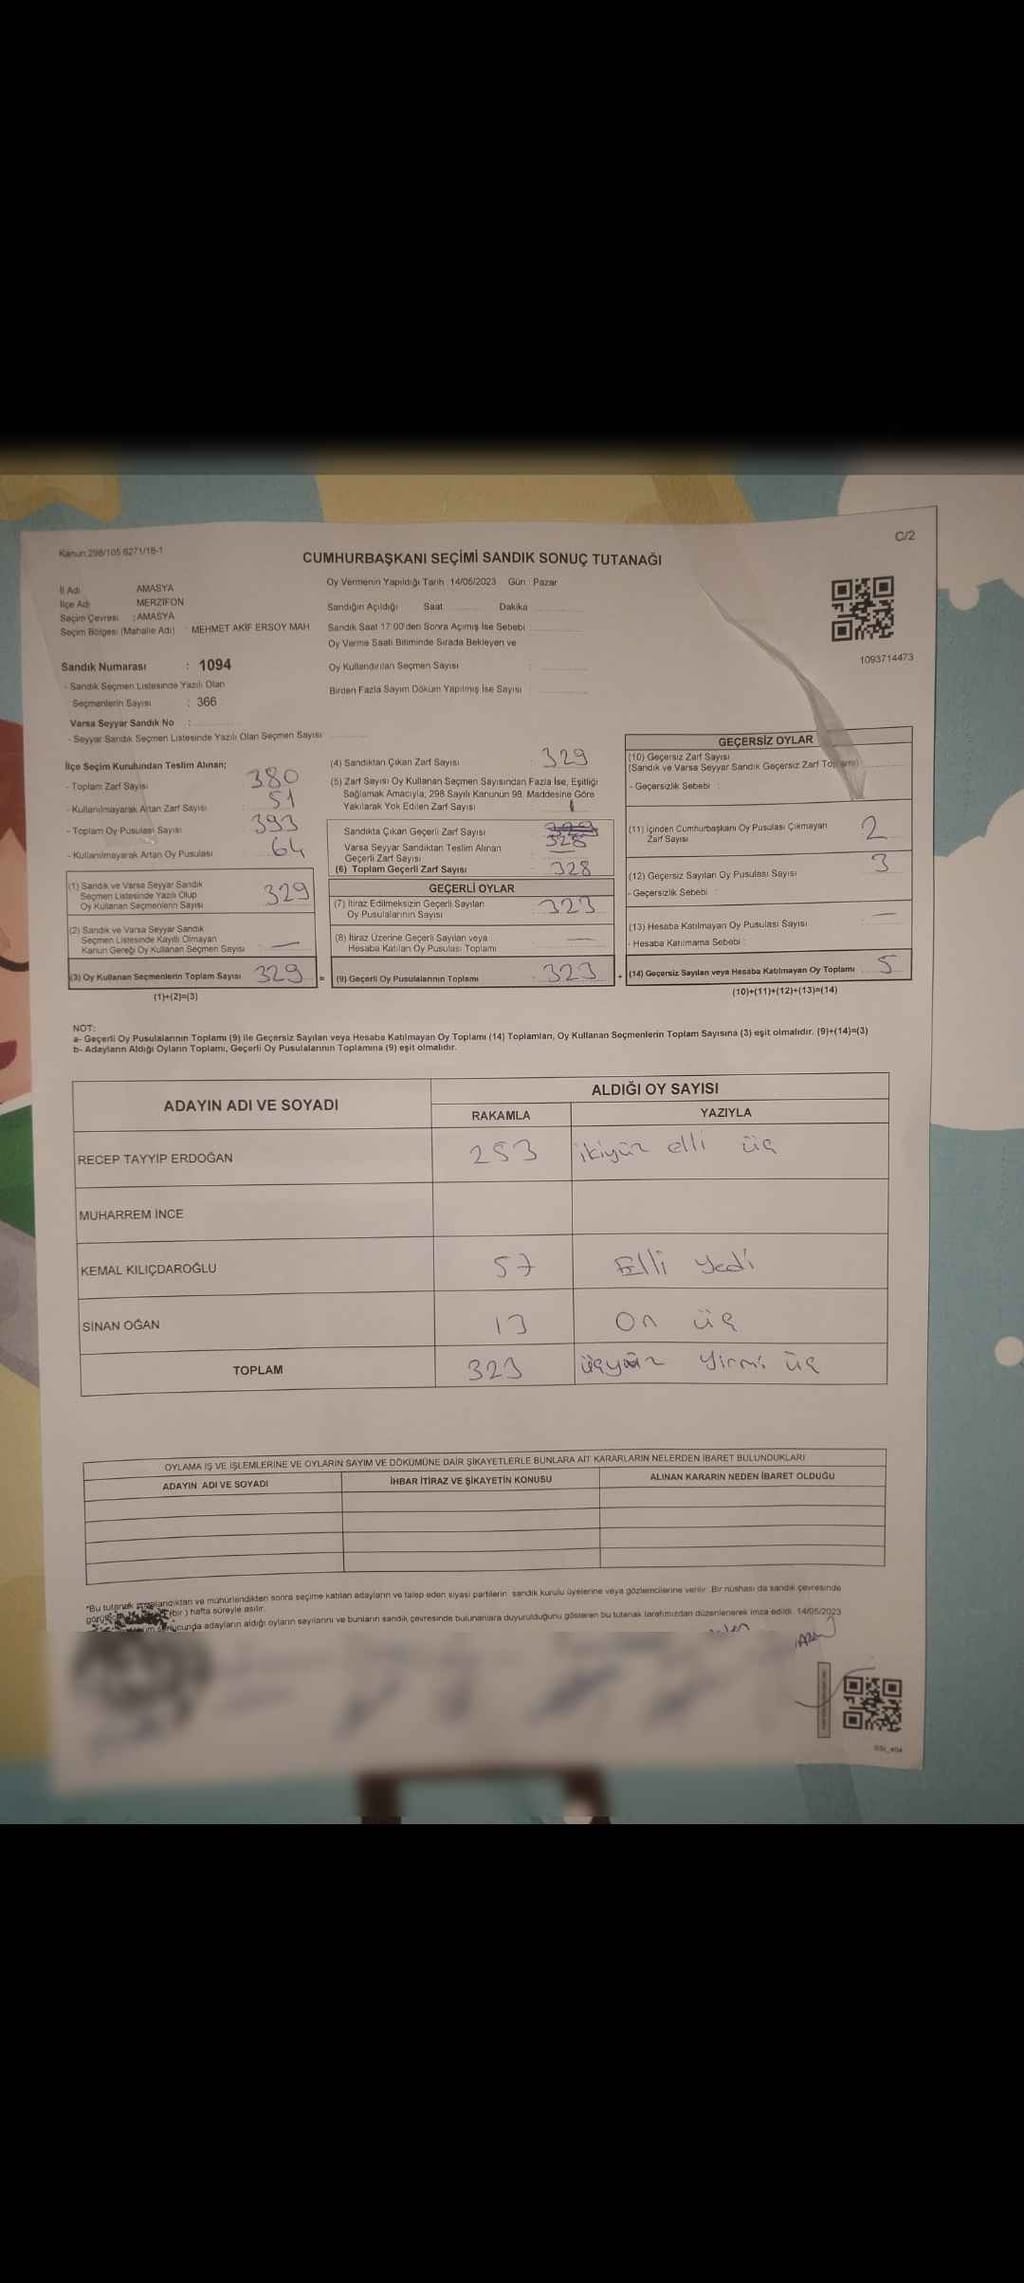 C/2
Kanun:298/105 6271/18-1
CUMHURBAŞKANI SEÇİMİ SANDIK SONUÇ TUTANAĞI
İl Adı : AMASYA
İlçe Adı : MERZİFON
Seçim Çevresi : AMASYA
Seçim Bölgesi (Mahalle Adı) : MEHMET AKİF ERSOY MAH
Sandık Numarası : 1094
- Sandık Seçmen Listesinde Yazılı Olan
Seçmenlerin Sayısı : 366
Varsa Seyyar Sandık No :
- Seyyar Sandık Seçmen Listesinde Yazılı Olan Seçmen Sayısı
Oy Vermenin Yapıldığı Tarih : 14/05/2023 Gün : Pazar
Sandığın Açıldığı Saat Dakika
Sandık Saat 17:00'den Sonra Açımış İse Sebebi :
Oy Verme Saati Bitiminde Sırada Bekleyen ve
Oy Kullandırılan Seçmen Sayısı :
Birden Fazla Sayım Döküm Yapılmış İse Sayısı :
1093714473
İlçe Seçim Kurulundan Teslim Alınan;
- Toplam Zarf Sayısı : 380
- Kullanılmayarak Artan Zarf Sayısı : 51
- Toplam Oy Pusulası Sayısı : 393
- Kullanılmayarak Artan Oy Pusulası : 64
(1) Sandık ve Varsa Seyyar Sandık
Seçmen Listesinde Yazılı Olup
Oy Kullanan Seçmenlerin Sayısı 329
(2) Sandık ve Varsa Seyyar Sandık
Seçmen Listesinde Kayıtlı Olmayan
Kanun Gereği Oy Kullanan Seçmen Sayısı —
(3) Oy Kullanan Seçmenlerin Toplam Sayısı 329 =
(1)+(2)=(3)
(4) Sandıktan Çıkan Zarf Sayısı : 329
(5) Zarf Sayısı Oy Kullanan Seçmen Sayısından Fazla İse, Eşitliği
Sağlamak Amacıyla, 298 Sayılı Kanunun 98. Maddesine Göre
Yakılarak Yok Edilen Zarf Sayısı : 1
Sandıkta Çıkan Geçerli Zarf Sayısı : 328
Varsa Seyyar Sandıktan Teslim Alınan
Geçerli Zarf Sayısı : —
(6) Toplam Geçerli Zarf Sayısı : 328
GEÇERLİ OYLAR
(7) İtiraz Edilmeksizin Geçerli Sayılan
Oy Pusulalarının Sayısı : 323
(8) İtiraz Üzerine Geçerli Sayılan veya
Hesaba Katılan Oy Pusulası Toplamı : —
(9) Geçerli Oy Pusulalarının Toplamı : 323 +
GEÇERSİZ OYLAR
(10) Geçersiz Zarf Sayısı
(Sandık ve Varsa Seyyar Sandık Geçersiz Zarf Toplamı)
- Geçersizlik Sebebi :
(11) İçinden Cumhurbaşkanı Oy Pusulası Çıkmayan
Zarf Sayısı 2
(12) Geçersiz Sayılan Oy Pusulası Sayısı 3
- Geçersizlik Sebebi :
(13) Hesaba Katılmayan Oy Pusulası Sayısı : —
- Hesaba Katılmama Sebebi :
(14) Geçersiz Sayılan veya Hesaba Katılmayan Oy Toplamı : 5
(10)+(11)+(12)+(13)=(14)
NOT:
a- Geçerli Oy Pusulalarının Toplamı (9) ile Geçersiz Sayılan veya Hesaba Katılmayan Oy Toplamı (14) Toplamları, Oy Kullanan Seçmenlerin Toplam Sayısına (3) eşit olmalıdır. (9)+(14)=(3)
b- Adayların Aldığı Oyların Toplamı, Geçerli Oy Pusulalarının Toplamına (9) eşit olmalıdır.
ADAYIN ADI VE SOYADI ALDIĞI OY SAYISI
RAKAMLA YAZIYLA
RECEP TAYYIP ERDOĞAN 253 ikiyüz elli üç
MUHARREM İNCE
KEMAL KILIÇDAROĞLU 57 Elli yedi
SİNAN OĞAN 13 On üç
TOPLAM 323 üçyüz yirmi üç
OYLAMA İŞ VE İŞLEMLERİNE VE OYLARIN SAYIM VE DÖKÜMÜNE DAİR ŞİKAYETLERLE BUNLARA AİT KARARLARIN NELERDEN İBARET BULUNDUKLARI
ADAYIN ADI VE SOYADI İHBAR İTİRAZ VE ŞİKAYETİN KONUSU ALINAN KARARIN NEDEN İBARET OLDUĞU
*Bu tutanak ve mühürlendikten sonra seçime katılan adayların ve talep eden siyasi partilerin sandık kurulu üyelerine veya gözlemcilerine verilir. Bir nüshası da sandık çevresinde
(bir) hafta süreyle asılır.
adayların aldığı oyların sayılarını ve bunların sandık çevresinde bulunanlara duyurulduğunu gösteren bu tutanak tarafımızdan düzenlenerek imza edildi. 14/05/2023